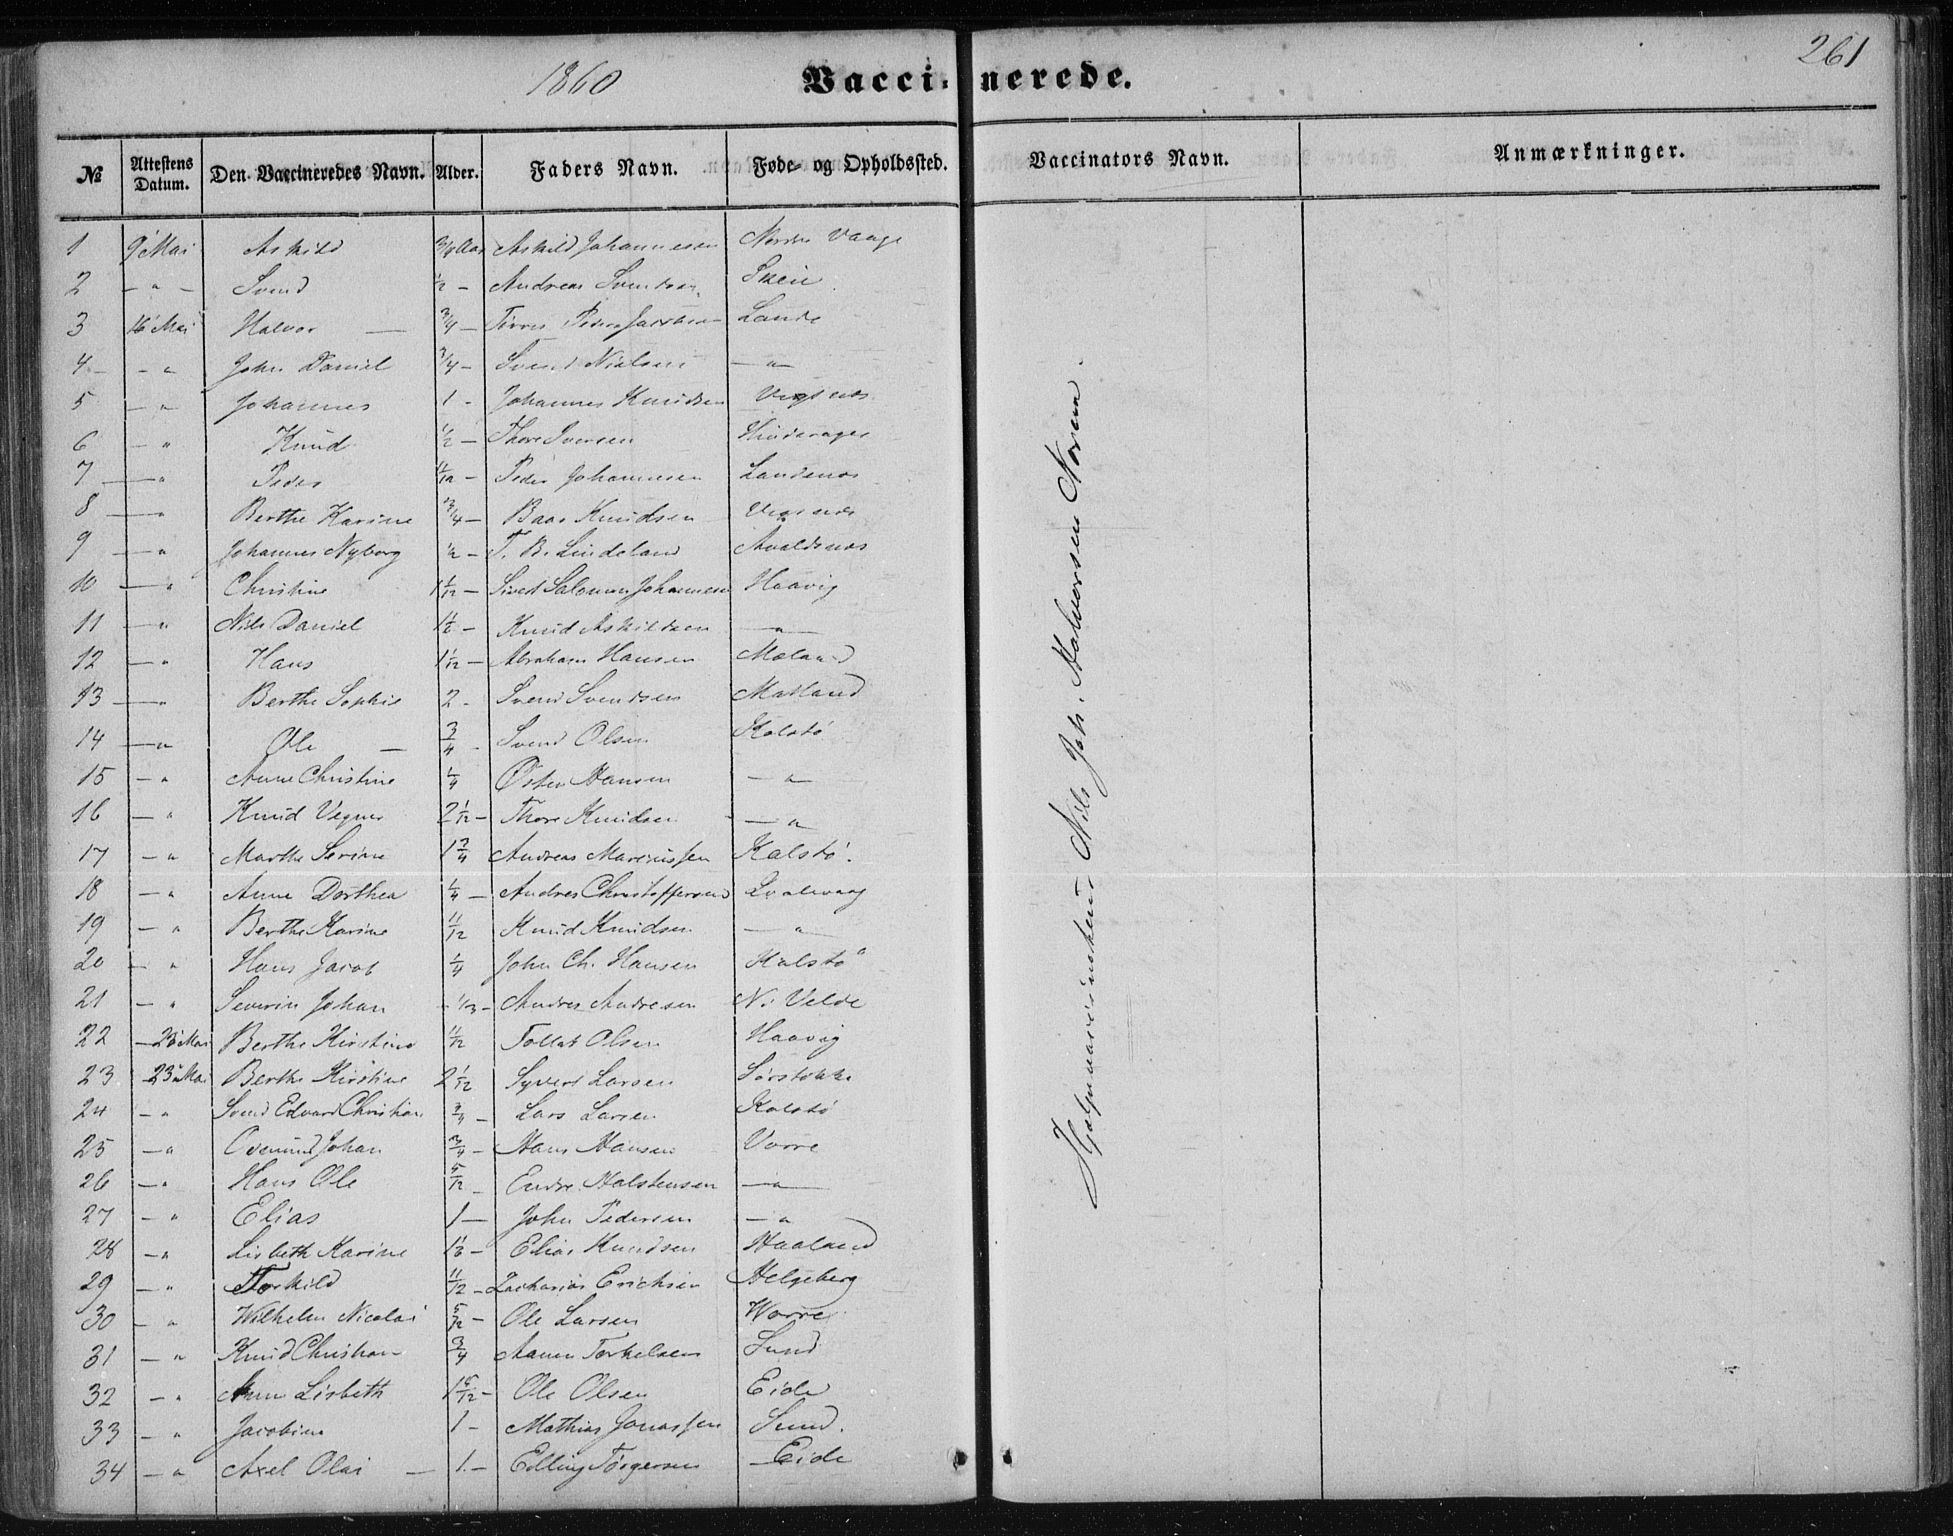 1860 Vaccinerede. 261
№ Attestens Datum. Den Vaccineredes Navn. Alder. Faders Navn. Føde- og Opholdssted. Vaccinators Navn. Anmærkninger.
1 9 Mai Askild 3/4 Aar Askild Johannesen Nordre Vaage
2 — " — Svend 1/2 — Andreas Svendsen Skeie
3 16 Mai Halvor — 3/4 — Peder Jacobsen Lande
4 — — " John Daniel 3/4 — Svend Nielsen — " —
5 — " Johannes 1 — Johannes Knudsen
6 — " Knud 1/2 — Thore Iversen
7 — " Peder 11/12 — Peder Johannesen Landenes
8 — " Berthe Karine 3/4 — Baar Knudsen
9 — " Johannes Nyborg 1/2 — T. B. Lindeland Avaldsnes
10 — " Christine 1 1/12 — Sivert Salomon Johannesen Haavig
11 — " Nils Daniel 1 1/2 — Knud Askildsen — " —
12 — " Hans 1 1/12 — Abraham Hansen Mæland
13 — " Berthe Sophie 2 — Svend Svendsen Matland
14 — " Ole — 3/4 — Svend Olsen Kalstø
15 — " Anne Christine 1/4 Østen Hansen — " —
16 — " Knud Vegner 2 1/12 — Thore Knudsen — " —
17 — " Marthe Serine 1 3/4 Andreas Mariussen Kalstø.
18 — " Anne Dorthea 1/4 — Andres Christoffersen Qvalevaag
19 — " Berthe Karine 11/12 Knud Knudsen — " —
20 — " Hans Jacob 1/4 John Ch. Hansen Kalstø
21 — " Severin Johan — 1/3 — Andres Andresen N. Velde
22 — 20 Mai Berthe Kirstine 11/12 Tollak Olsen Haavig
23 — 23 Mai Berthe Kirstine 2 1/12 Syvert Larsen Sørstokke
24 — " Svend Edvard Christian 3/4 — Lars Larsen Kalstø
25 — " Ovemund Johan 3/4 — Hans Hansen Vorre
26 — " Hans Ole 5/12 — Endre Halstensen — " —
27 — " Elias 1 — John Pedersen — "
28 — " Lisbeth Karine 1 1/3 — Elias Knudsen Haaland
29 — " Torkild 11/12 — Zacharias Erichsen Helgeberg
30 — " Wilhelm Nicolai 5/12 — Ole Larsen Worre
31 — " Knud Christian 3/4 Aanen Torkelsen Sund
32 — " Anne Lisbeth 1 5/12 — Ole Olsen Eide
33 — " Jacobine 1 — Mathias Jonassen Sund.
34 — " Axel Olai — 1. — Elling Törgersen Eide
Hjælpevaccinateur Nils Joh. Halvorsen Norem.